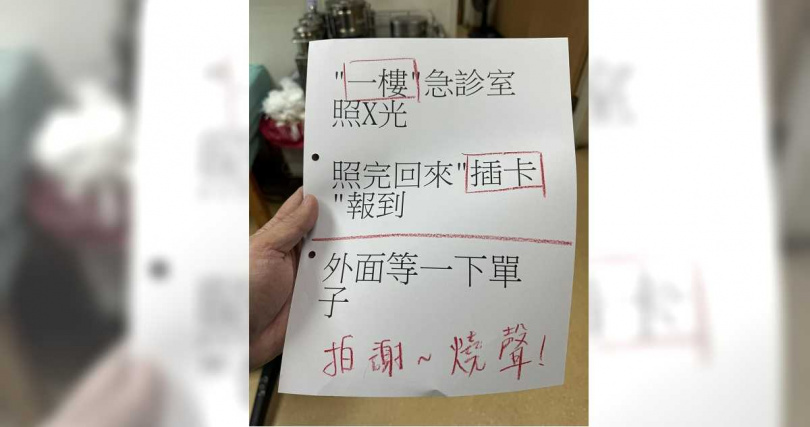 "一樓"急診室
照X光
照完回來"插卡
"報到
外面等一下單
子
拍謝~燒聲!